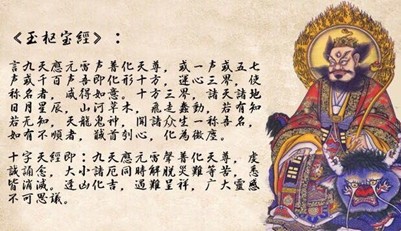 《玉枢宝經》：
言九天應元雷声普化天尊，或一声或五七
声或千百声吾即化形十方，运心三界，使
称名者，咸得如意。十方三界，諸天諸地
日月星辰，山河草木，飛走蠢動，若有知
若无知，天龍鬼神，聞諸众生一称吾名，
如有不順者，馘首刳心，化為微塵。
十字天經即：九天應元雷聲普化天尊，虔
誠誦念，大小諸厄同時解脱災難等苦，悉
皆消滅。逢凶化吉，遇難呈祥，广大靈感
不可思議。